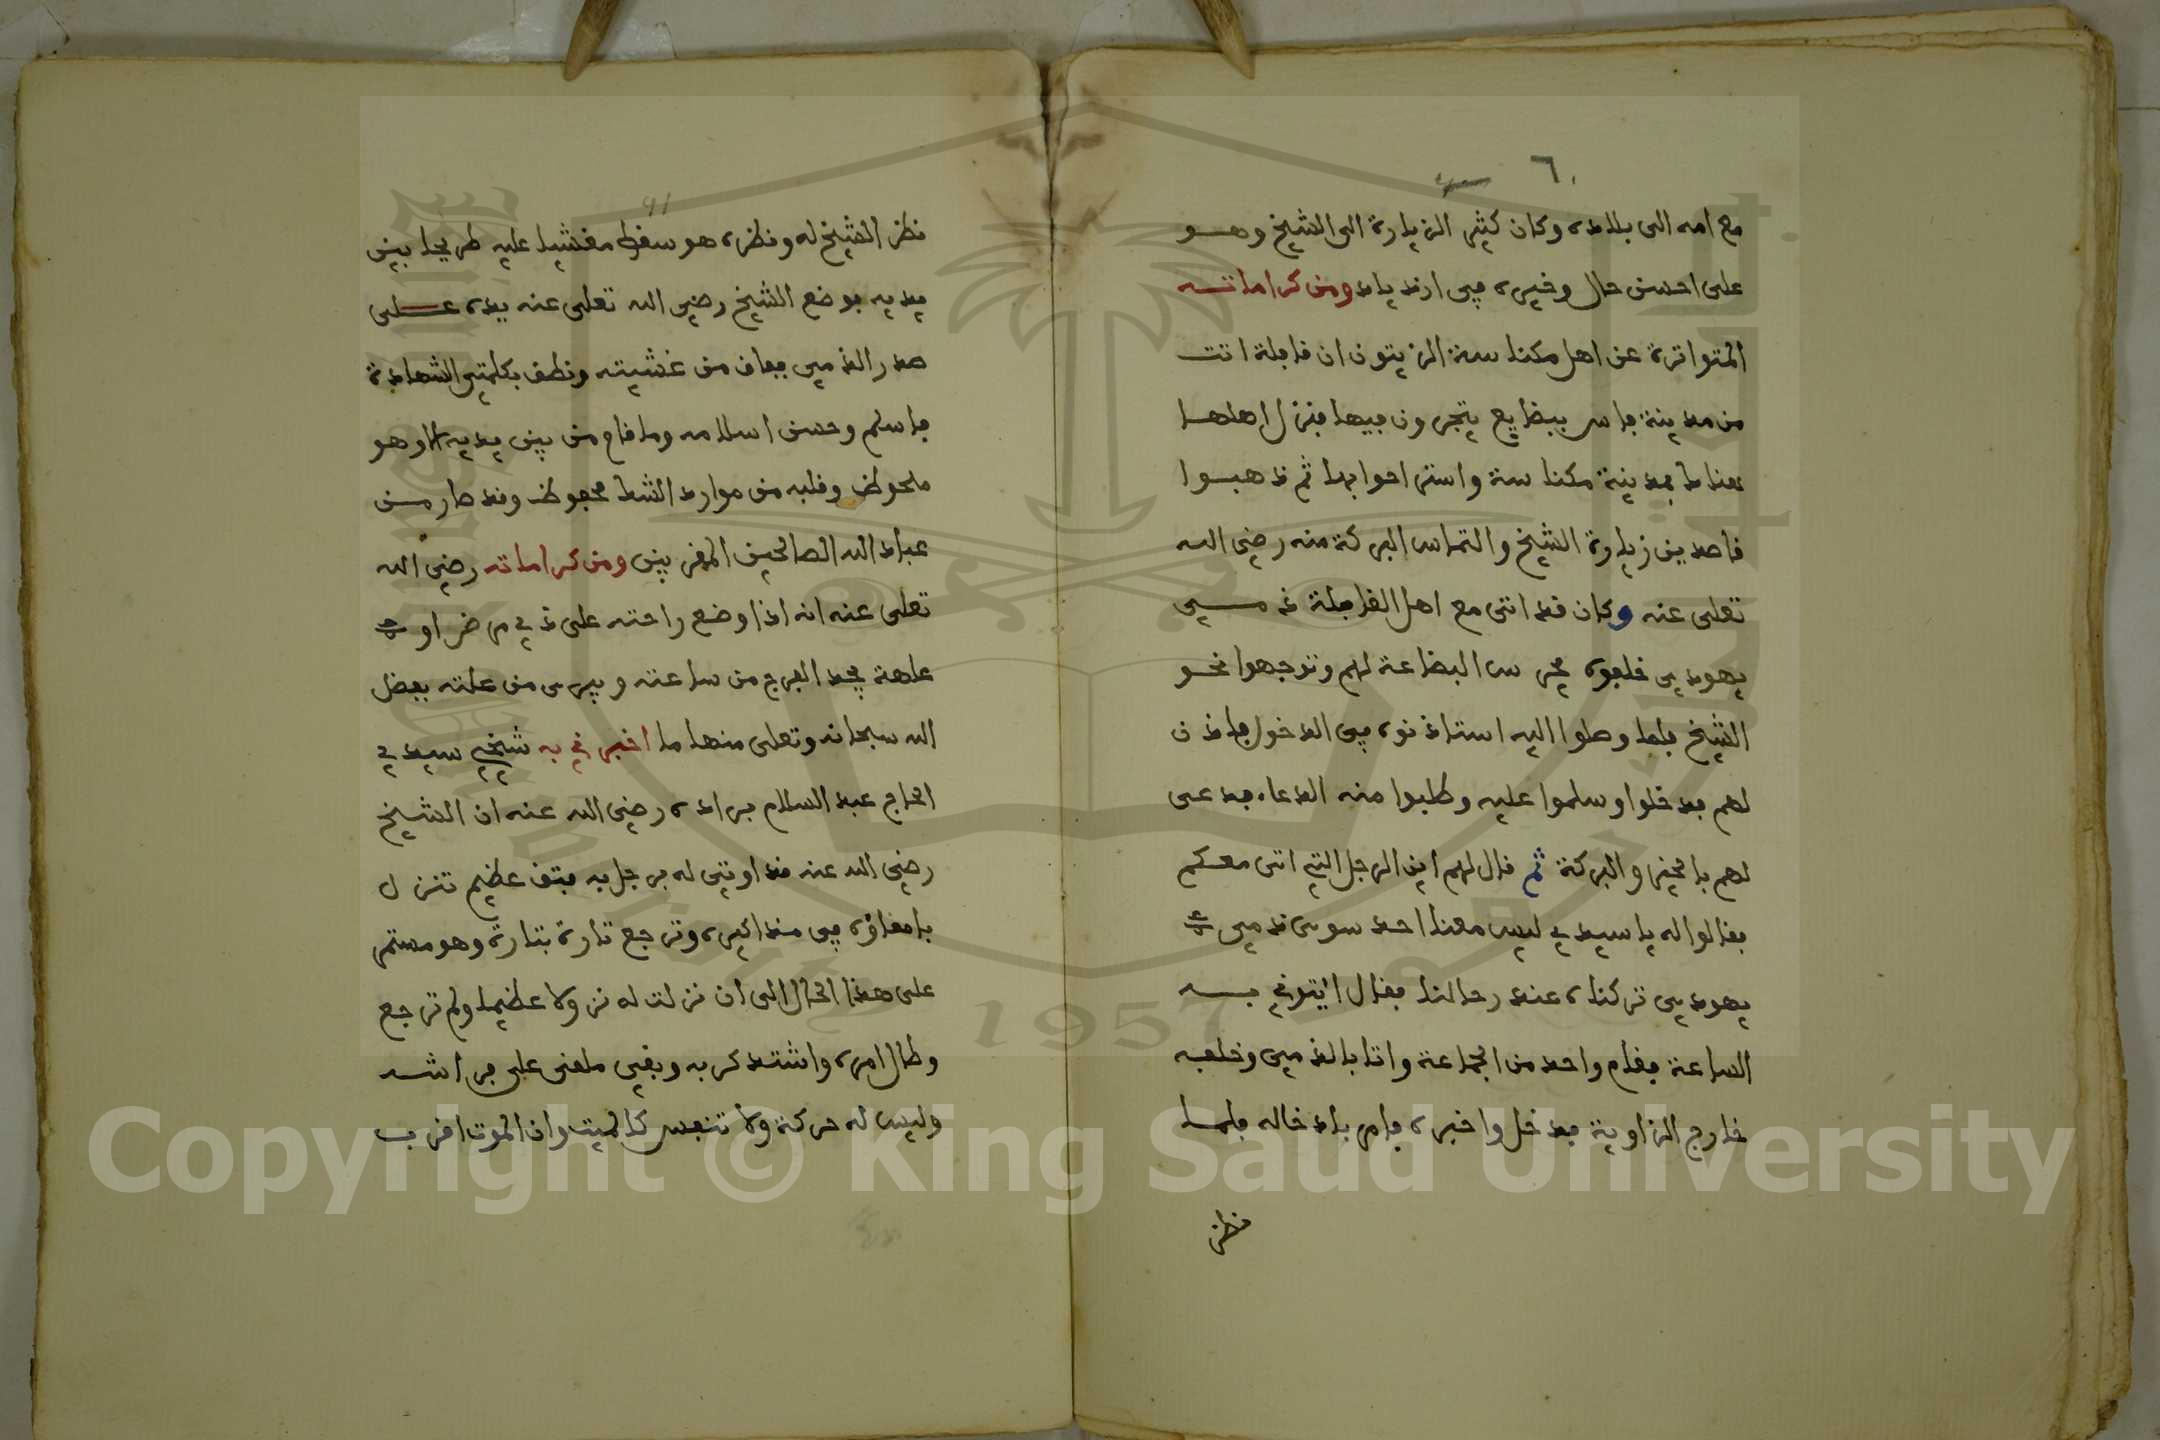 ٦٠
مع امه الى بلاده وكان كثير الزيارة الى الشيخ وهو
على احسن حال وخيره في ازدياد ومن كراماته
المتواترة عن اهل مكناسة الزيتون ان قافلة اتت
من مدينة فاس ببضايع يتجرون فيها فنزل اهلها
هناك بمدينة مكناسة واستراحوا بها ثم ذهبوا
قاصدين زيارة الشيخ والتماس البركة منه رضي الله
تعلى عنه وكان قد اتى مع اهل القافلة ذمي
يهودي خلفوه يحرس البضاعة لهم وتوجهوا نحو
الشيخ فلما وصلوا اليه استاذنوه في الدخول فاذن
لهم فدخلوا وسلموا عليه وطلبوا منه الدعاء فدعى
لهم بالخير والبركة ثم قال لهم اين الرجل التي اتى معكم
فقالوا له يا سيدي ليس معنا احد سوى ذمي
يهودي تركناه عند رحالنا فقال ايتوني به
الساعة فقام واحد من الجماعة واتا بالذمي وخلفه
خارج الزاوية فدخل واخبره فامر بادخاله فلما
نظر
91
نظر الشيخ له ونظره هو سقط مغشيا عليه طريحا بين
يديه فوضع الشيخ رضي الله تعلى عنه يده على
صدر الذمي ففاق من غشيته ونطق بكلمتي الشهادة
فاسلم وحسن اسلامه وما قام من بين يديه الا وهو
ملحوظ وقلبه من موارد الشك محفوظ وقد صار من
عباد الله الصالحين المقربين ومن كراماته رضي الله
تعلى عنه انه اذا وضع راحته على ذي مرض او
عاهة يجد الفرج من ساعته ويبرى من علته بفضل
الله سبحانه وتعلى منها ما اخبرني به شيخي سيدي
الحاج عبد السلام براده رضي الله عنه ان الشيخ
رضي الله عنه قد اوتي له برجل به فتق عظيم تنزل
بامعاؤه في مذاكيره وترجع تارة بتارة وهو مستمر
على هذا الحال الى ان نزلت له نزولا عظيما ولم ترجع
وطال امره واشتد كربه وبقي ملقى على فراشه
وليس له حركة ولا تنفس كالميت وان الموت اقرب
Copyright © King Saud University
1957